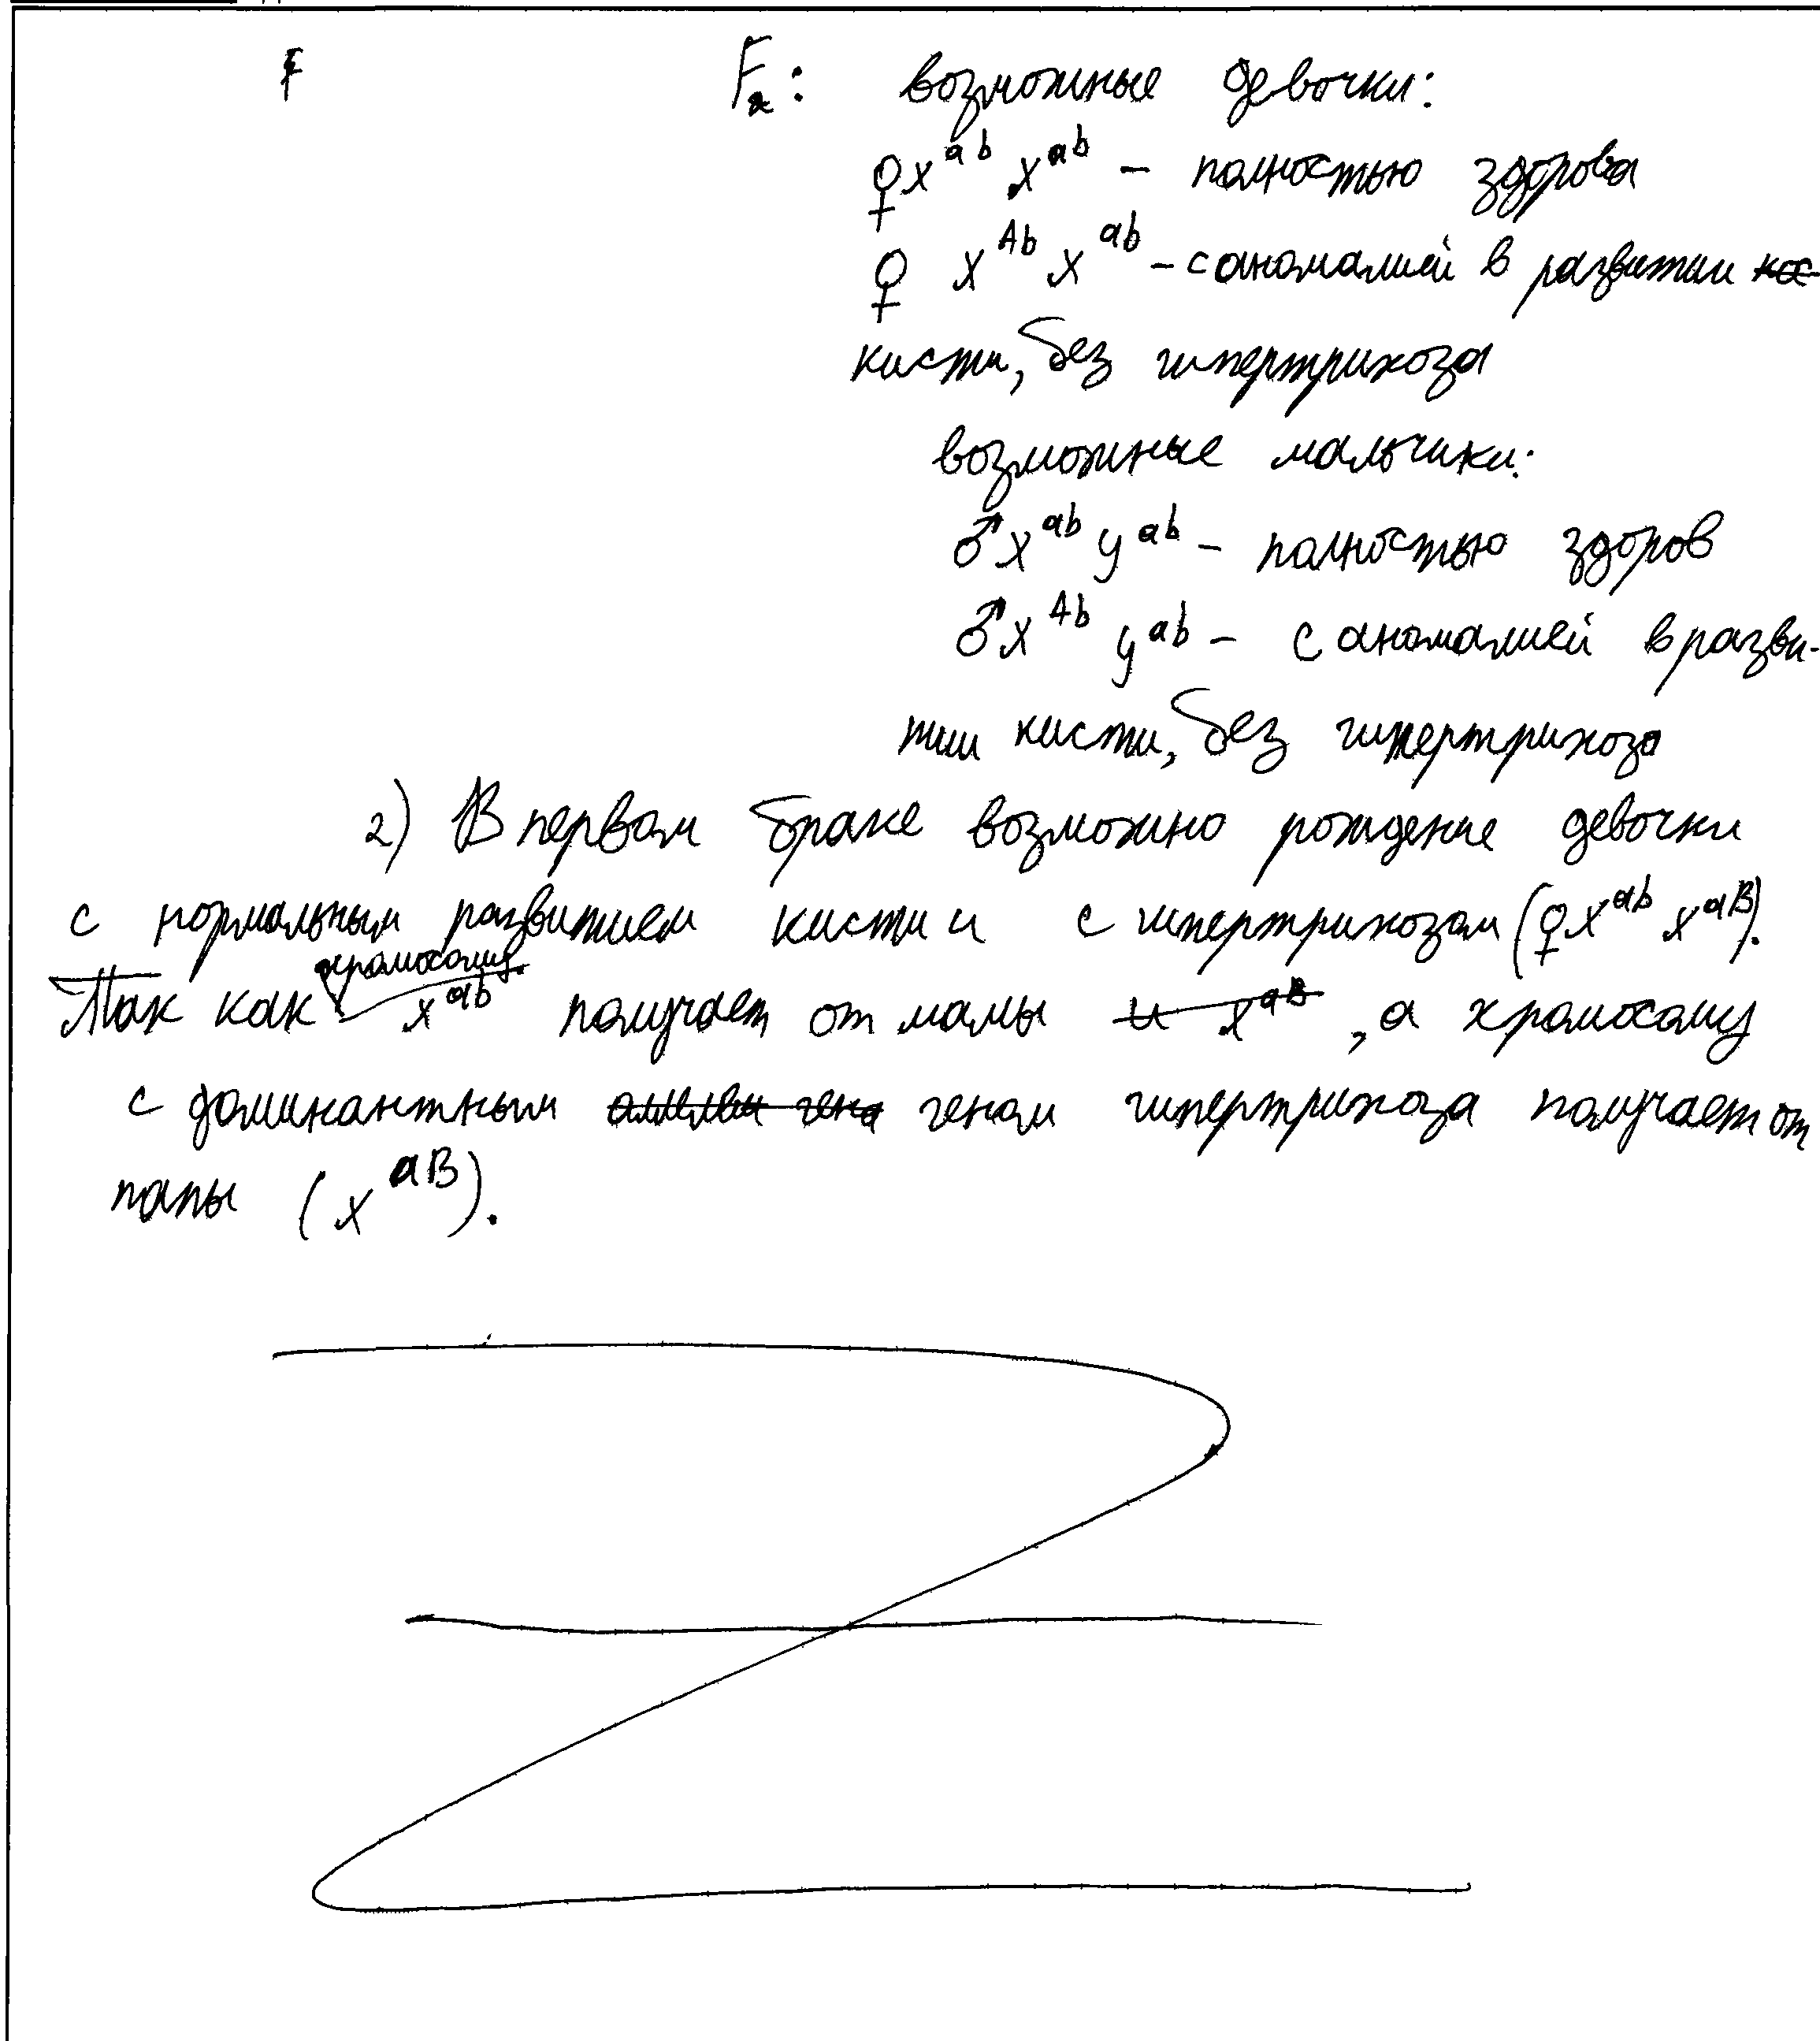 F F₂: возможные девочки:
♀ x^ab x^ab – полностью здорова
♀ x^Ab x^ab – с аномалией в развитии
кисти, без гипертрихоза
возможные мальчики:
♂ x^ab y^ab – полностью здоров
♂ x^Ab y^ab – с аномалией в разви-
тии кисти, без гипертрихоза
2) В первом браке возможно рождение девочки
с нормальным развитием кисти и с гипертрихозом (♀ x^ab x^aB).
хромосому
Так как x^ab получает от мамы и x^aB, а хромосому
с доминантным аллелем гена геном гипертрихоза получает от
папы (x^aB).